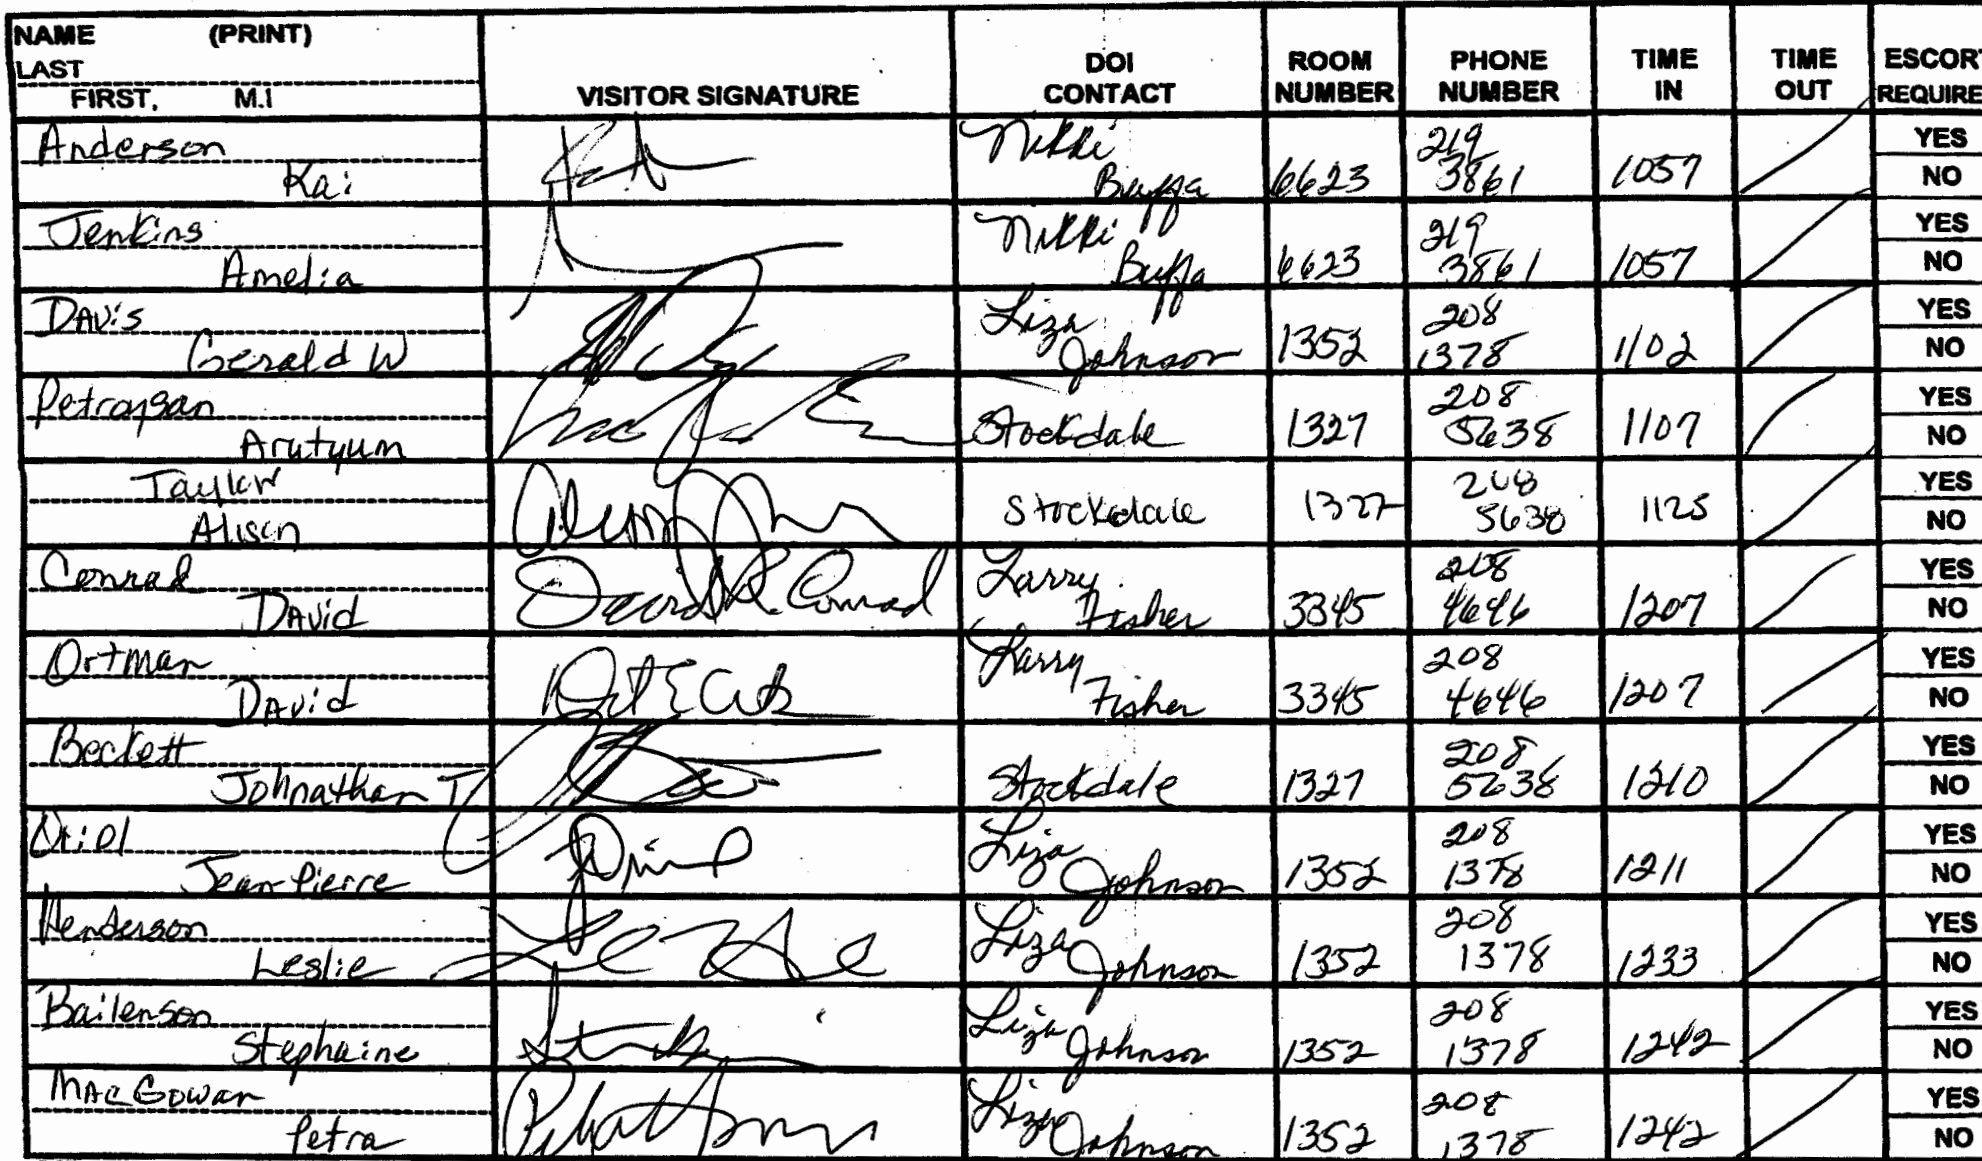 NAME (PRINT)
LAST
FIRST, M.I
VISITOR SIGNATURE
DOI
CONTACT
ROOM
NUMBER
PHONE
NUMBER
TIME
IN
TIME
OUT
ESCORT
REQUIRE
Anderson
Kai
Nikki
Buffa
6623
219
3861
1057
YES
NO
Jenkins
Amelia
Nikki
Buffa
6623
219
3861
1057
YES
NO
DAvis
Gerald W
Liza
Johnson
1352
208
1378
1102
YES
NO
Petroysan
Arutyum
Stockdale
1327
208
5638
1107
YES
NO
Taylor
Alison
Stockdale
1327
208
5638
1125
YES
NO
Conrad
DAvid
David R. Conrad
Larry
Fisher
3345
208
4646
1207
YES
NO
Ortman
DAvid
Larry
Fisher
3345
208
4646
1207
YES
NO
Beckett
Johnathan T
Stockdale
1327
208
5638
1210
YES
NO
Jean Pierre
Liza
Johnson
1352
208
1378
1211
YES
NO
Henderson
Leslie
Liza
Johnson
1352
208
1378
1233
YES
NO
Bailenson
Stephaine
Liza
Johnson
1352
208
1378
1242
YES
NO
MAcGowan
Petra
Liza
Johnson
1352
208
1378
1242
YES
NO